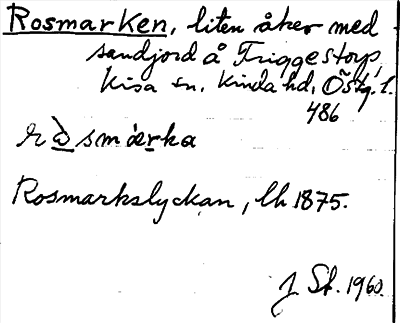 Rosmarken, liten åker med
sandjord å Triggestorp,
Kisa sn, Kinda hd, Östg. l.
486
ròsmärka
Rosmarkslyckan, lh 1875.
J St. 1960.